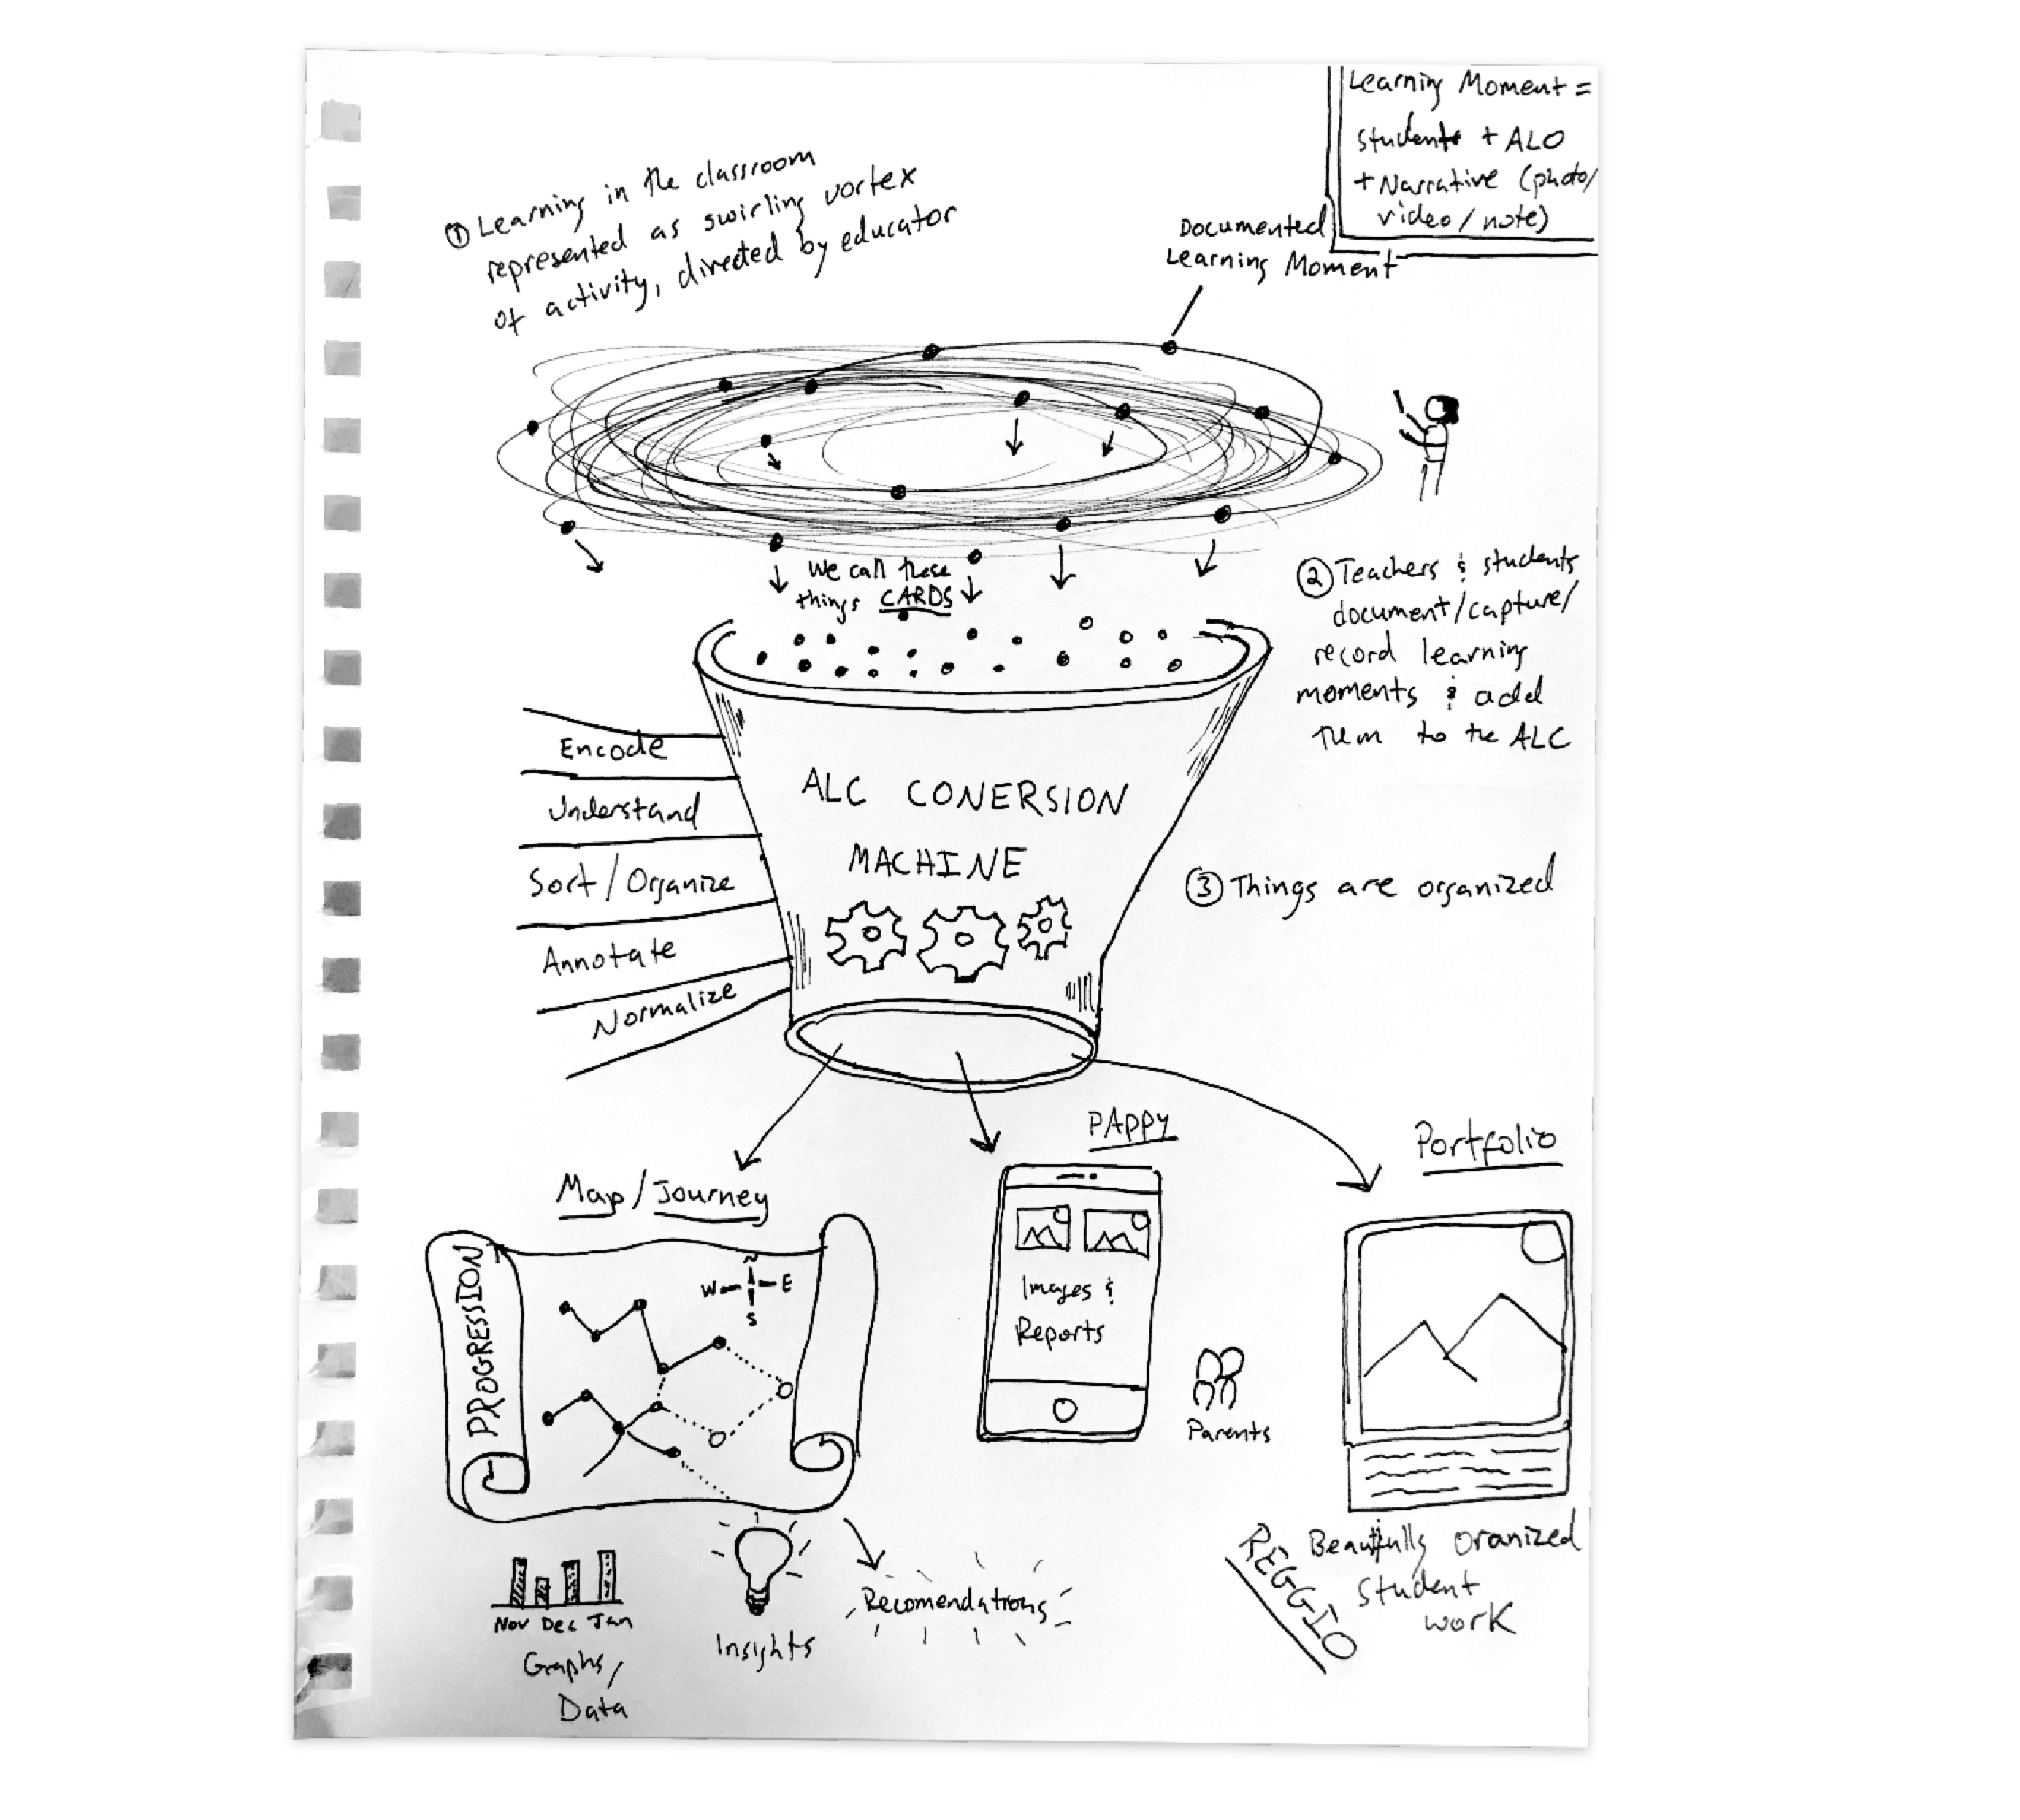 Learning Moment =
students + ALO
+ Narrative (photo/
video / note)
① Learning in the classroom
represented as swirling vortex
of activity, directed by educator
Documented
Learning Moment
We call these
things CARDS
② Teachers & students
document/capture/
record learning
moments & add
them to the ALC
Encode
Understand
Sort / Organize
Annotate
Normalize
ALC CONERSION
MACHINE
③ Things are organized
Map / Journey
PROGRESSION
N
W E
S
Nov Dec Jan
Graphs/
Data
Insights
Recomendations
PAPPY
Images &
Reports
Parents
Portfolio
REGGIO
Beautifully oranized
student
work